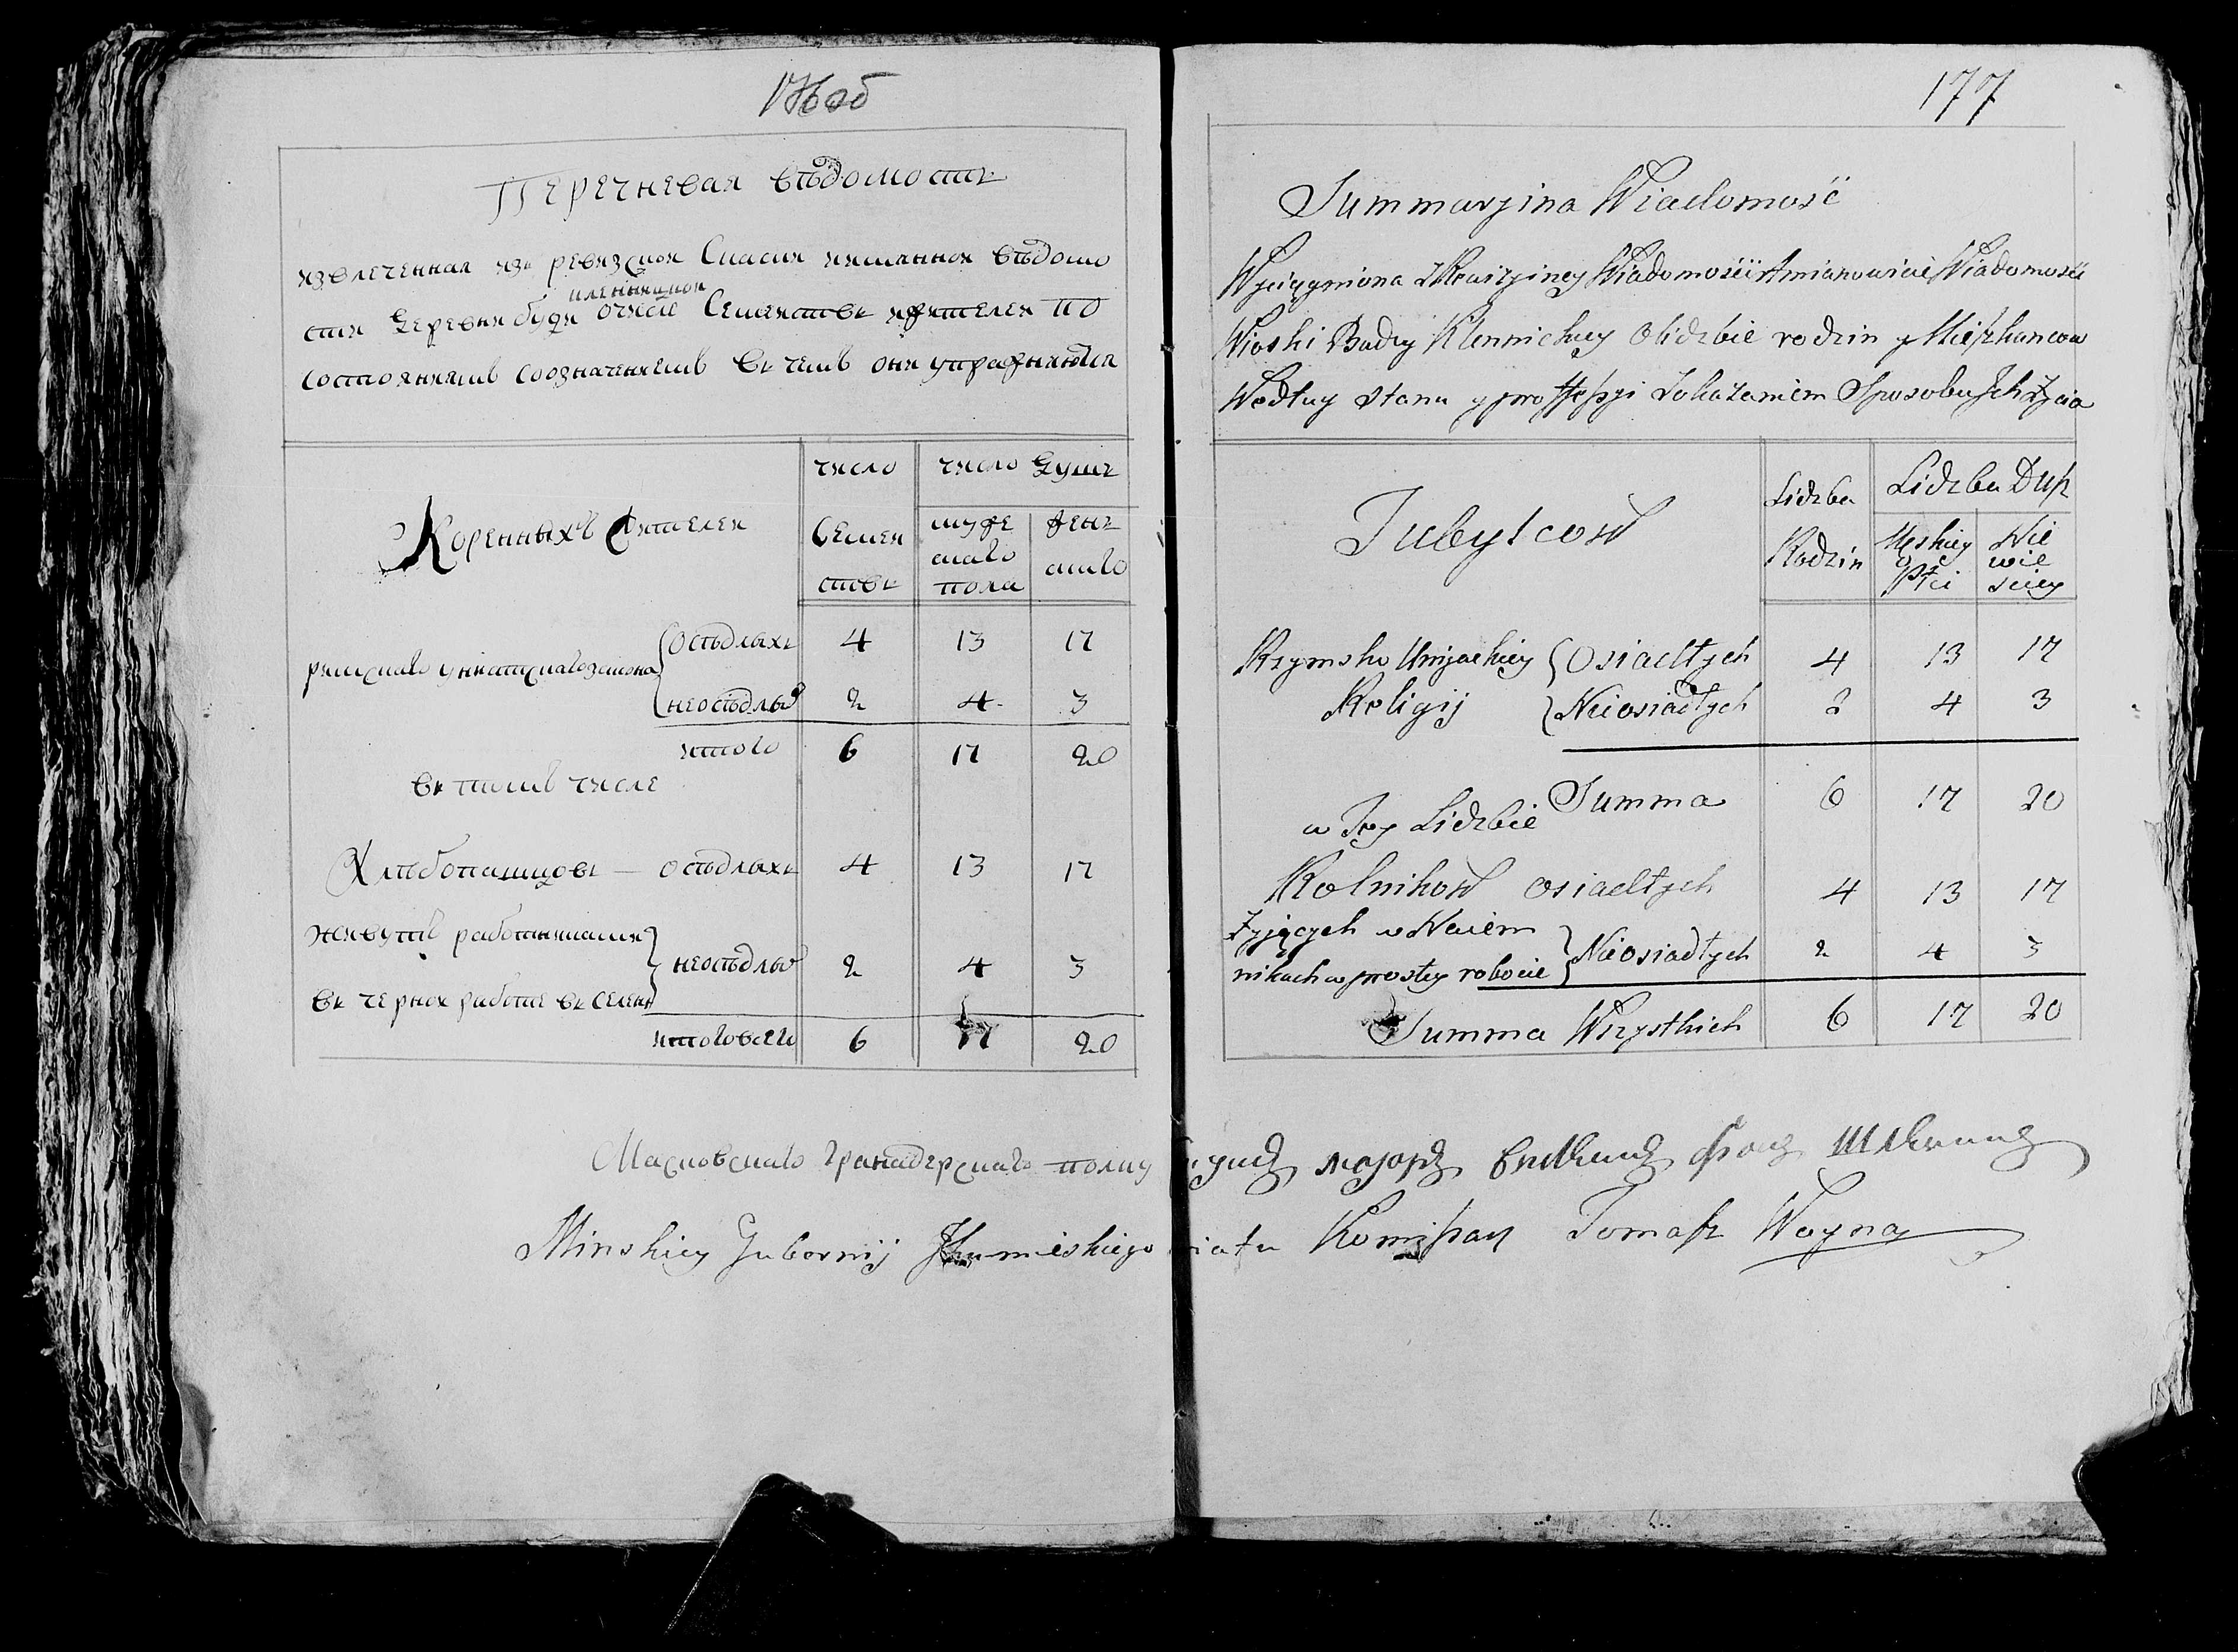 176об
Перечневая вѣдомость
извлеченная изъ ревизской Сказки имянной вѣдомо
сти Деревни буди кленницкой о числе Семействъ ижителей по
состояниямъ соозначениемъ въ чемъ они упражняются
Коренныхъ жителей
число Семействъ
число Душъ
мужескаго пола
женскаго
римскаго униатскаго закона
Оседлыхъ 4 13 17
неоседлых 2 4 3
итого 6 17 20
въ томъ числе
Хлебопашцовъ — Оседлыхъ 4 13 17
живутъ работниками
въ черной работе въ селени
неоседлых 2 4 3
итого всего 6 17 20
Московскаго гранадерскаго полку секундъ маіоръ
177
Summaryina Wiadomość
Wyciągniona z Rewizyiney Wiadomości Amianowicie Wiadomości
Wioski Budy Klennickiey o lidzbie rodzin y Mieszkancow
Według Stanu y proffessyi z okazaniem Sposobu Ich Życia
Tubylcow
Lidzba Rodzin
Lidzba Dusz
Męskiey Płci
Niewiesciey
Rzymsko Uniackiey Religij
Osiadłych 4 13 17
Nieosiadłych 2 4 3
Summa 6 17 20
w Tey Lidzbie
Rolnikow osiadłych 4 13 17
Żyjących w Naiem
nikach w prostey robocie
Nieosiadłych 2 4 3
Summa Wszystkich 6 17 20
Minskiey Gubernij Ihumenskiego Powiatu Komissarz Tomasz Woyna